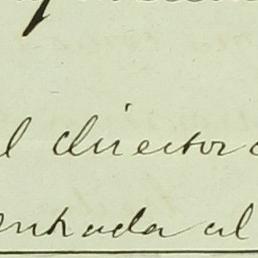 l director
entrada al